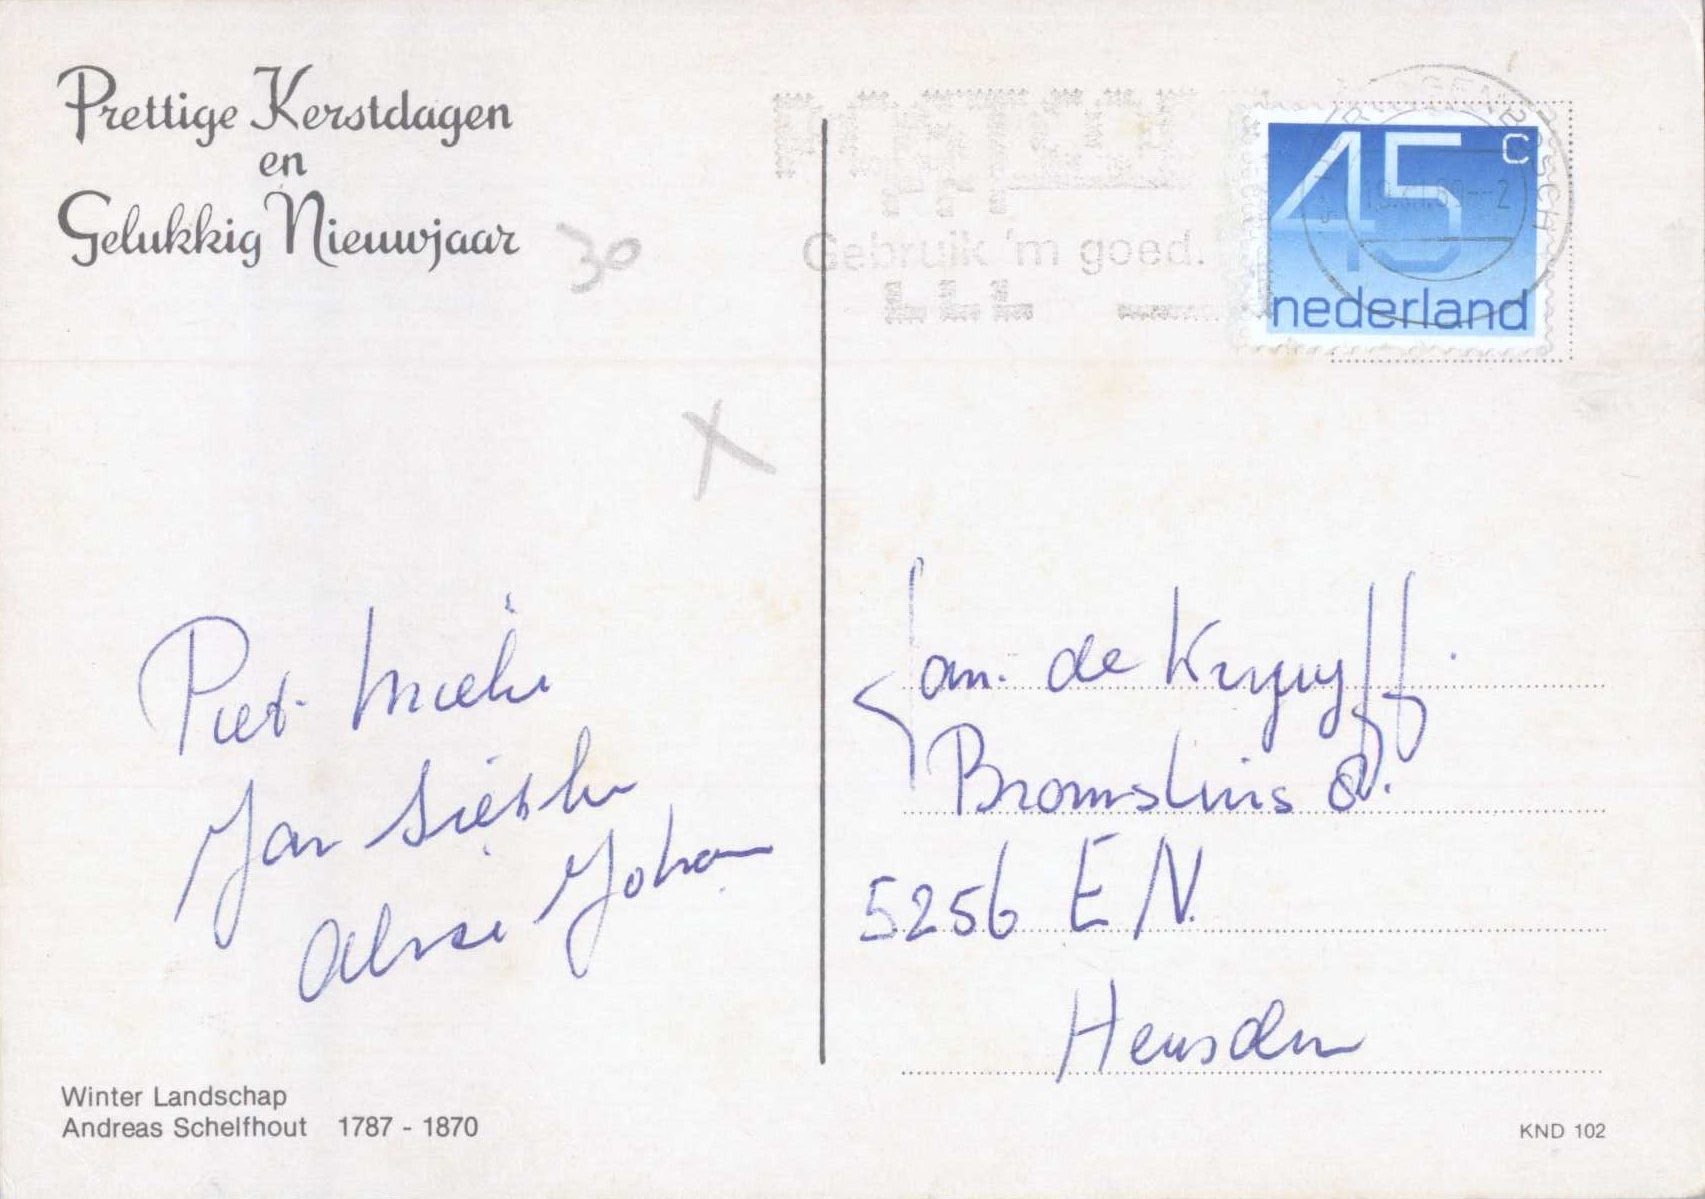 Prettige Kerstdagen
en
Gelukkig Nieuwjaar
30
X
Piet. Mieke
Jan Sietske
Johan
Winter Landschap
Andreas Schelfhout 1787 - 1870
Gebruik 'm goed.
45 c
nederland
Fam. de Kruyff.
5256 EN.
Heusden
KND 102